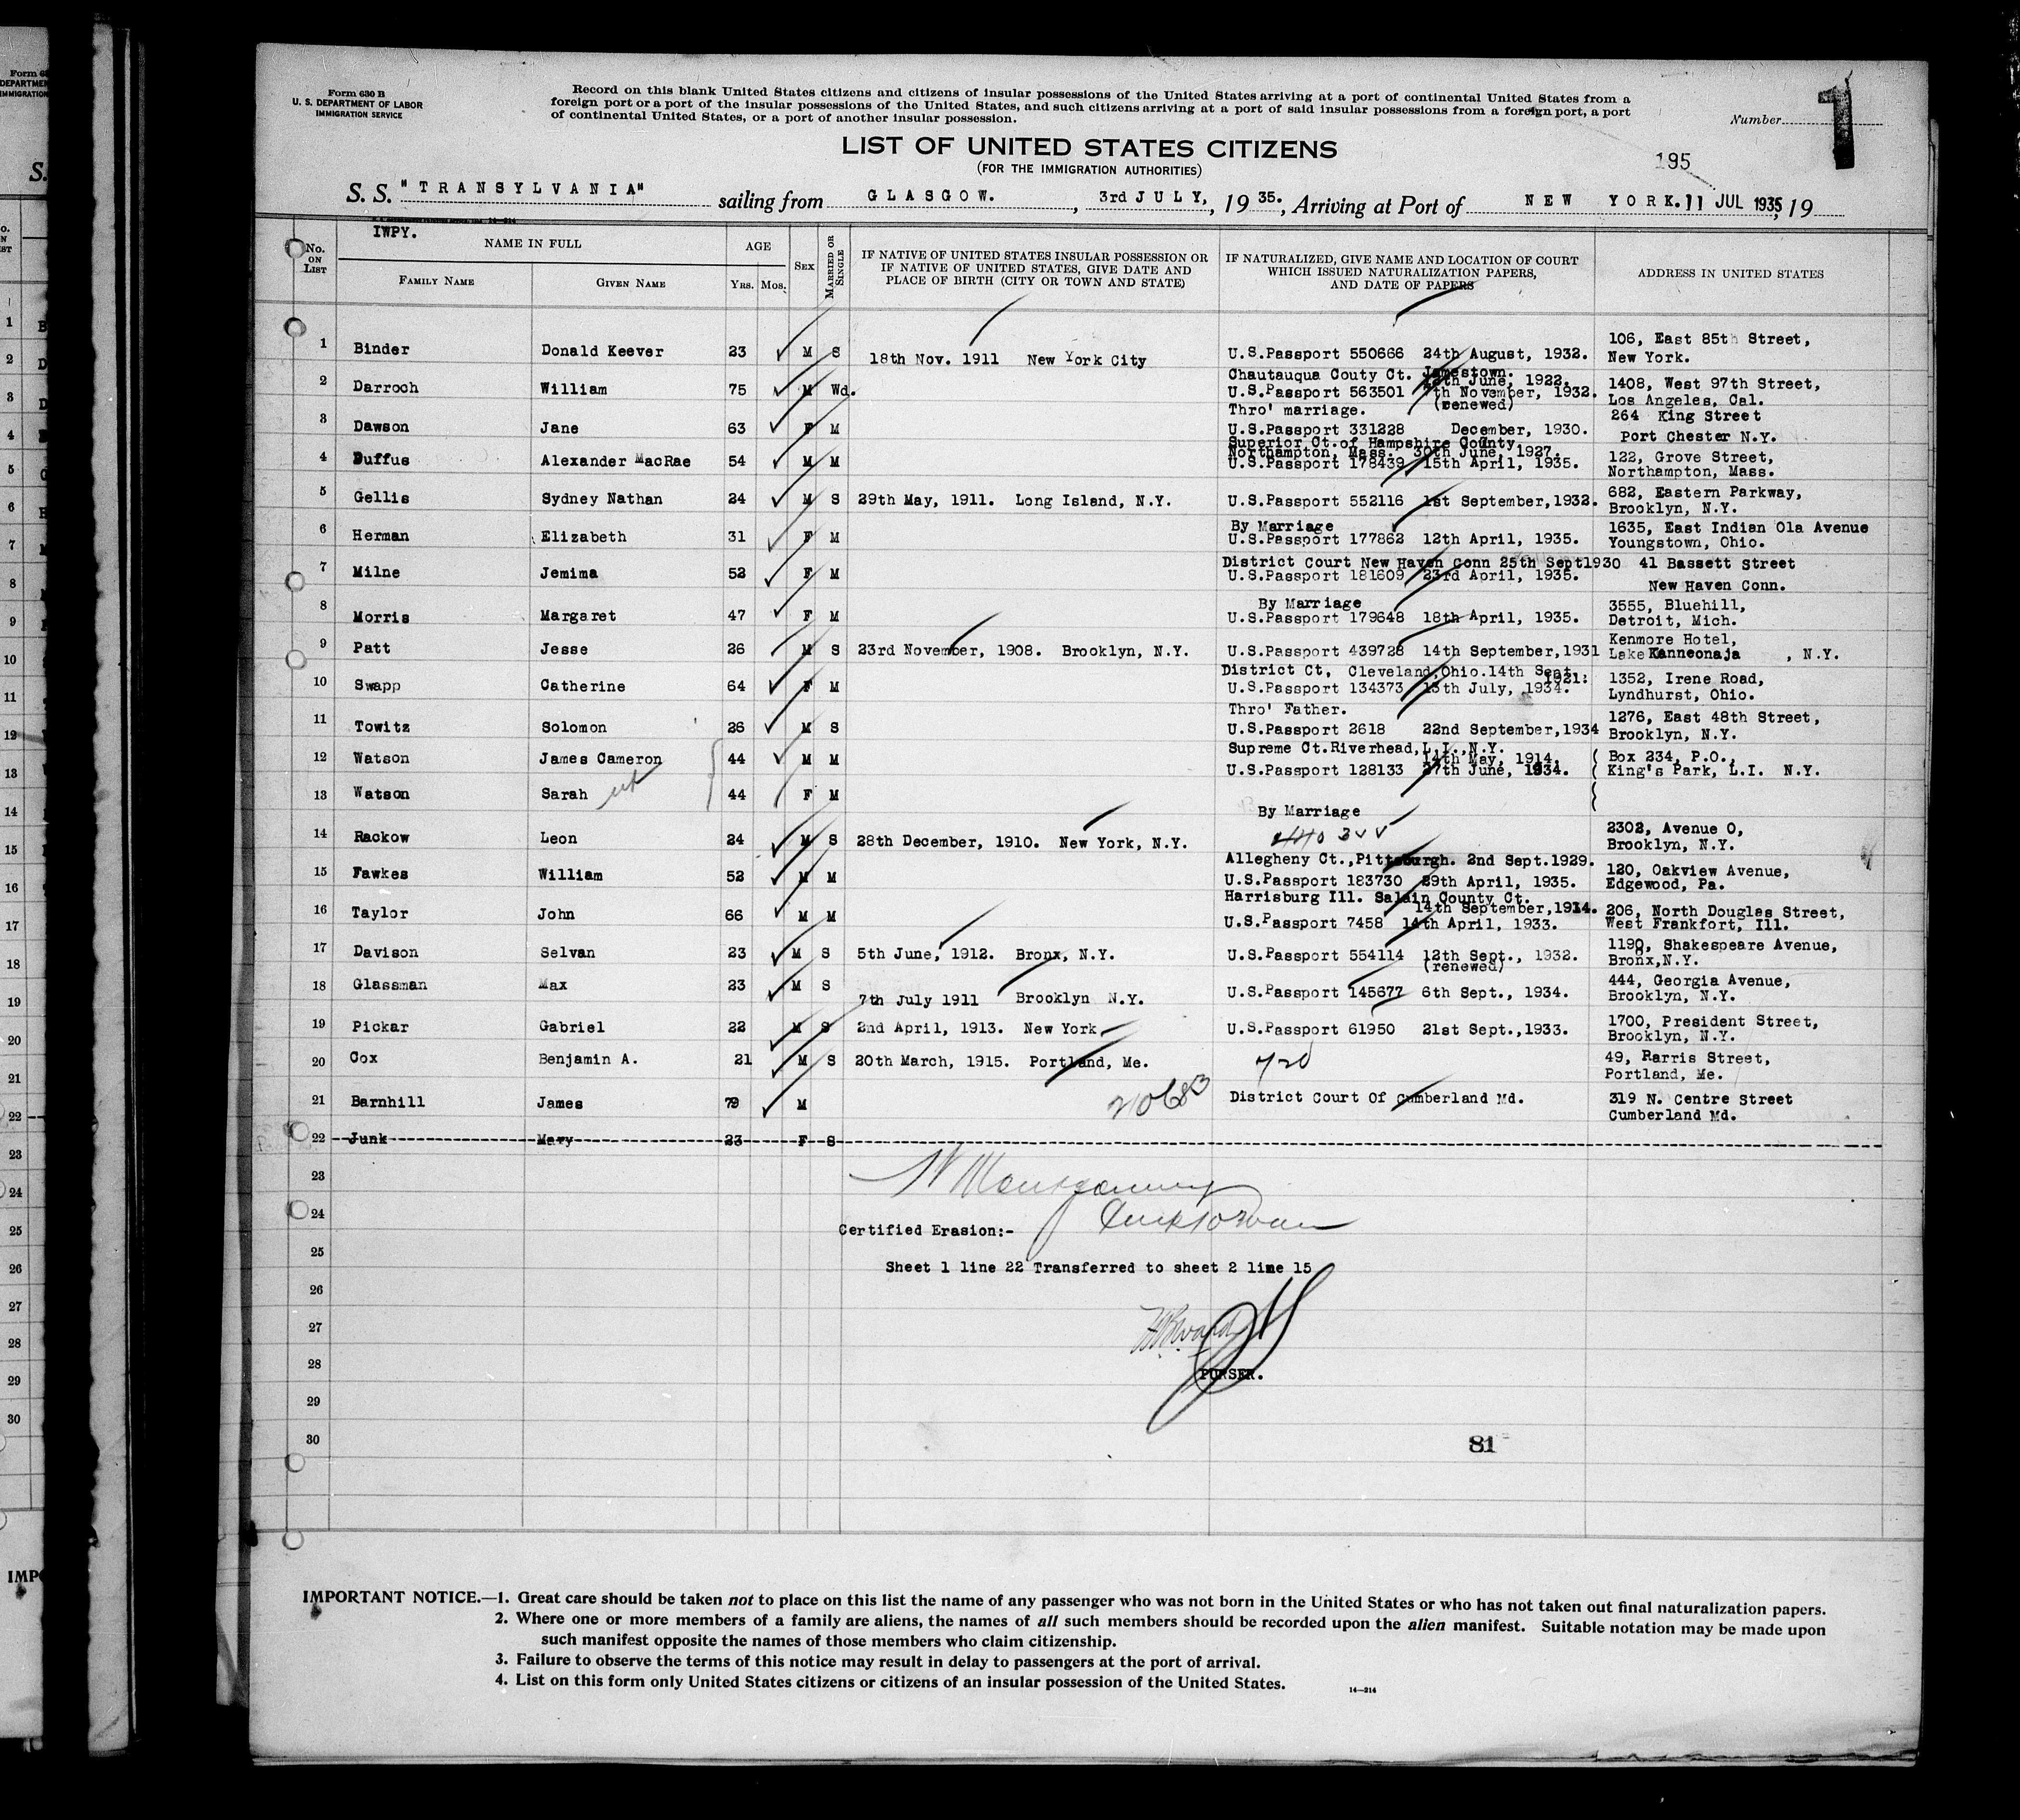 Form 630 B
U. S. DEPARTMENT OF LABOR
IMMIGRATION SERVICE
Record on this blank United States citizens and citizens of insular possessions of the United States arriving at a port of continental United States from a
foreign port or a port of the insular possessions of the United States, and such citizens arriving at a port of said insular possessions from a foreign port, a port
of continental United States, or a port of another insular possession.
Number 1
LIST OF UNITED STATES CITIZENS
(FOR THE IMMIGRATION AUTHORITIES)
195
S. S. "TRANSYLVANIA" sailing from GLASGOW. , 3rd JULY, , 19 35. , Arriving at Port of NEW YORK. 11 JUL 1935, 19
IWPY.
No. ON LIST NAME IN FULL FAMILY NAME GIVEN NAME AGE YRS. MOS. SEX MARRIED OR SINGLE
IF NATIVE OF UNITED STATES INSULAR POSSESSION OR
IF NATIVE OF UNITED STATES, GIVE DATE AND
PLACE OF BIRTH (CITY OR TOWN AND STATE)
IF NATURALIZED, GIVE NAME AND LOCATION OF COURT
WHICH ISSUED NATURALIZATION PAPERS,
AND DATE OF PAPERS
ADDRESS IN UNITED STATES
1 Binder Donald Keever 23 M S 18th Nov. 1911 New York City U.S.Passport 550666 24th August, 1932. 106, East 85th Street,
New York.
Chautauqua Couty Ct. Jamestown.
June, 1922.
2 Darroch William 75 M Wd. U.S.Passport 563501 7th November, 1932. 1408, West 97th Street,
(renewed) Los Angeles, Cal.
Thro' marriage. 264 King Street
3 Dawson Jane 63 F M U.S.Passport 331228 December, 1930. Port Chester N.Y.
Superior Ct.of Hampshire County
Northampton, Mass. 30th June, 1927.
4 Duffus Alexander MacRae 54 M M U.S.Passport 178439 15th April, 1935. 122, Grove Street,
Northampton, Mass.
5 Gellis Sydney Nathan 24 M S 29th May, 1911. Long Island, N.Y. U.S.Passport 552116 1st September,1932. 682, Eastern Parkway,
Brooklyn, N.Y.
By Marriage
6 Herman Elizabeth 31 F M U.S.Passport 177862 12th April, 1935. 1635, East Indian Ola Avenue
Youngstown, Ohio.
District Court New Haven Conn 25th Sept1930 41 Bassett Street
7 Milne Jemima 52 F M U.S.Passport 181609 23rd April, 1935. New Haven Conn.
By Marriage
8 Morris Margaret 47 F M U.S.Passport 179648 18th April, 1935. 3555, Bluehill,
Detroit, Mich.
9 Patt Jesse 26 M S 23rd November, 1908. Brooklyn, N.Y. U.S.Passport 439728 14th September,1931 Kenmore Hotel,
Lake Kanneonaja , N.Y.
District Ct, Cleveland,Ohio.14th Sept.
1921.
10 Swapp Catherine 64 F M U.S.Passport 134373 13th July, 1934. 1352, Irene Road,
Lyndhurst, Ohio.
Thro' Father.
11 Towitz Solomon 26 M S U.S.Passport 2618 22nd September,1934 1276, East 48th Street,
Brooklyn, N.Y.
Supreme Ct.Riverhead,L.I.,N.Y.
14th May, 1914.
12 Watson James Cameron 44 M M U.S.Passport 128133 27th June, 1934. Box 234, P.O.,
King's Park, L.I. N.Y.
13 Watson Sarah 44 F M By Marriage
14 Rackow Leon 24 M S 28th December, 1910. New York, N.Y. 2302, Avenue O,
Brooklyn, N.Y.
Allegheny Ct.,Pittsburgh. 2nd Sept.1929.
15 Fawkes William 52 M M U.S.Passport 183730 29th April, 1935. 120, Oakview Avenue,
Edgewood, Pa.
Harrisburg Ill. Salain County Ct.
14th September,1914.
16 Taylor John 66 M M U.S.Passport 7458 14th April, 1933. 206, North Douglas Street,
West Frankfort, Ill.
17 Davison Selvan 23 M S 5th June, 1912. Bronx, N.Y. U.S.Passport 554114 12th Sept., 1932. 1190, Shakespeare Avenue,
(renewed) Bronx,N.Y.
18 Glassman Max 23 M S 7th July 1911 Brooklyn N.Y. U.S.Passport 145677 6th Sept., 1934. 444, Georgia Avenue,
Brooklyn, N.Y.
19 Pickar Gabriel 22 M S 2nd April, 1913. New York U.S.Passport 61950 21st Sept.,1933. 1700, President Street,
Brooklyn, N.Y.
20 Cox Benjamin A. 21 M S 20th March, 1915. Portland, Me. 720 49, Rarris Street,
Portland, Me.
21 Barnhill James 79 M 21068 District Court Of Cumberland Md. 319 N. Centre Street
Cumberland Md.
22 Junk Mary 23 F S
23
24
Certified Erasion:-
25
Sheet 1 line 22 Transferred to sheet 2 line 15
26
27
28
PURSER.
29
30
81
IMPORTANT NOTICE.—1. Great care should be taken not to place on this list the name of any passenger who was not born in the United States or who has not taken out final naturalization papers.
2. Where one or more members of a family are aliens, the names of all such members should be recorded upon the alien manifest. Suitable notation may be made upon
such manifest opposite the names of those members who claim citizenship.
3. Failure to observe the terms of this notice may result in delay to passengers at the port of arrival.
4. List on this form only United States citizens or citizens of an insular possession of the United States.
14—214